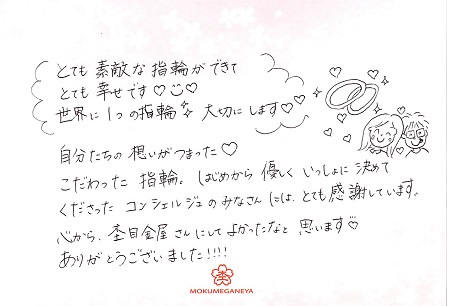 とても 素敵な 指輪ができて
とても 幸せです♡☺♡
世界に1つの指輪✨大切にします♡
自分たちの 想いがつまった♡
こだわった 指輪。はじめから 優しく いっしょに 決めて
くださった コンシェルジュの みなさんには、とても 感謝しています。
心から、杢目金屋 さんにして よかったなと 思います♡
ありがとうございました!!!!
MOKUMEGANEYA